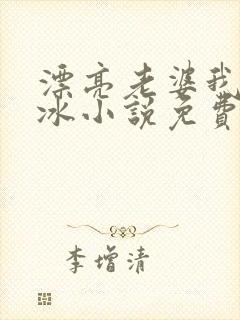 漂亮老婆我
冰小說免費
李增清